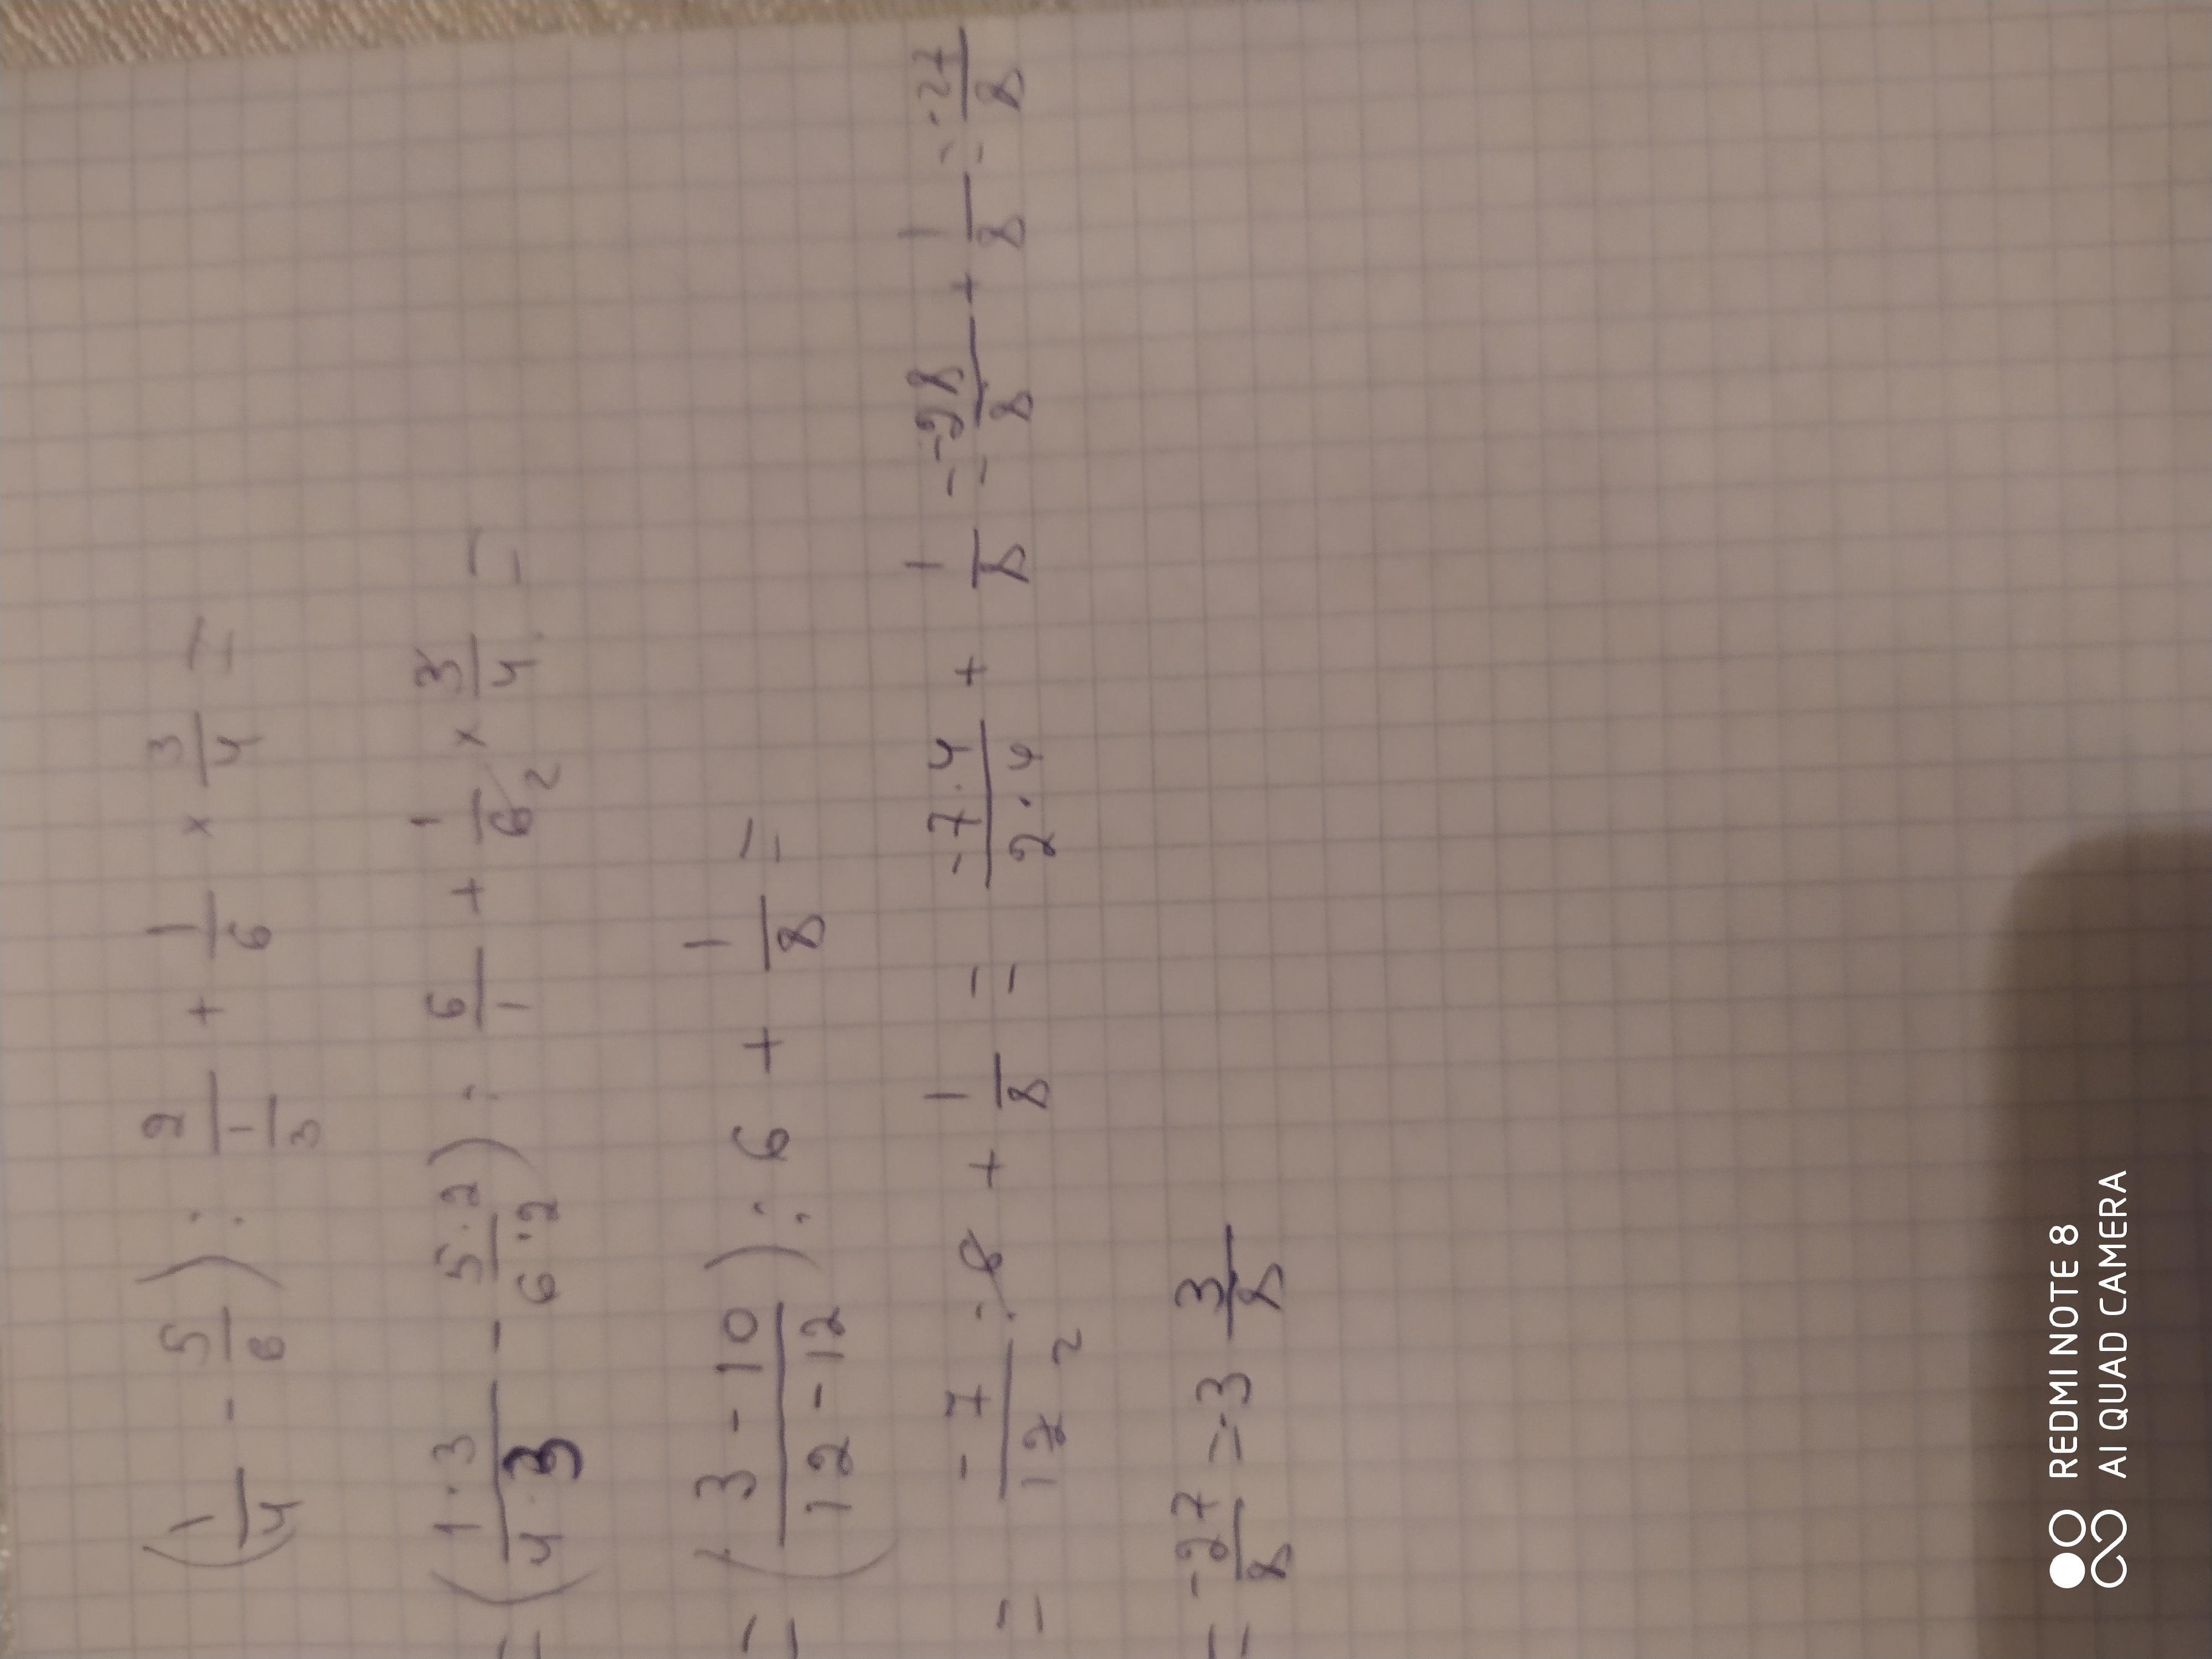 (1/4 - 5/6) : 2/(1/3) + 1/6 × 3/4 =
= (1·3/4·3 - 5·2/6·2) : 6/1 + 1/6 2 × 3/4 =
= (3 - 10/12 - 12) : 6 + 1/8 =
= -7/12 2 : 6 + 1/8 = -7·4/2·4 + 1/8 = -28/8 + 1/8 = -27/8
= -27/8 = -3 3/8
REDMI NOTE 8
AI QUAD CAMERA